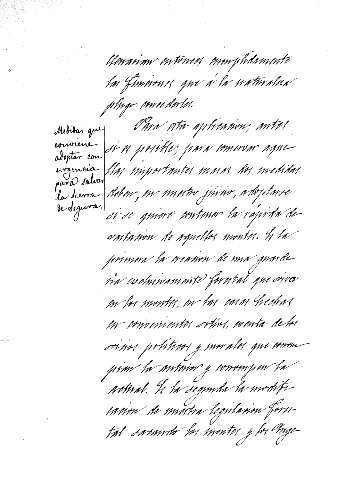 llenarian entónces cumplidamente
las funciones que á la naturaleza
plugo concederles.
Medidas que
conviene
adoptar con
urgencia
para salvar
la sierra
de Segura.
Para esta aplicacion, antes
si es posible, para conservar aque-
llas importantes masas dos medidas
deben, en nuestro juicio, adoptarse
si se quiere contener la rápida de-
vastacion de aquellos montes. Es la
primera la creacion de una guarde-
ría exclusivamente forestal que viva
en los montes, en las casas hechas
en convenientes sitios, exenta de los
vicios políticos y morales que corrom-
pian la anterior y corrompen la
actual. Es la segunda la modifi-
cacion de nuestra legislacion fores-
tal sacando los montes y los Inge-